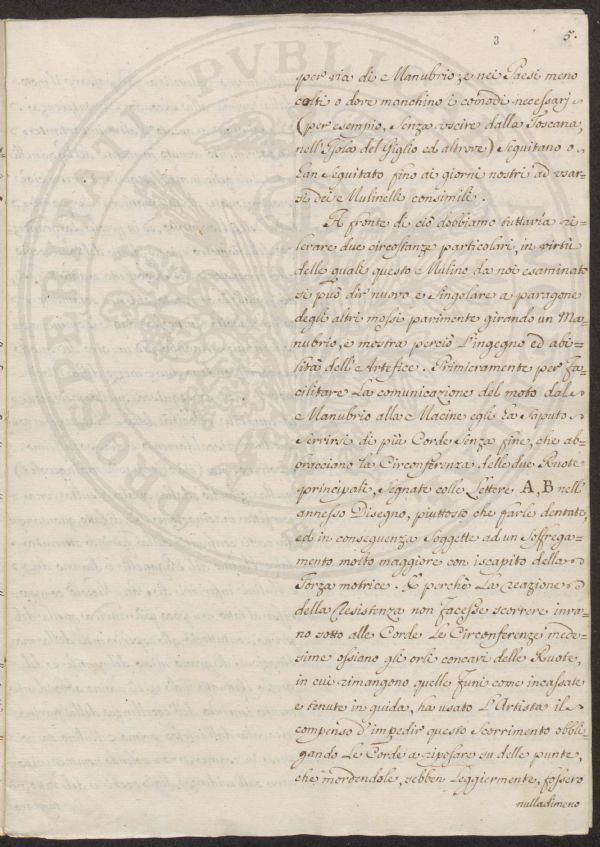 3
5.
per via di Manubrio; e nei Paesi meno
colti o dove manchino i comodi necessarj
(per esempio, senza uscire dalla Toscana,
nell'Isola del Giglio ed altrove) seguitano o
han seguitato fino ai giorni nostri ad usar=
si dei Mulinelli consimili.
A fronte di ciò dobbiamo tuttavía ri=
levare due circostanze particolari, in virtù
delle quali questo Mulino da noi esaminato
si può dir nuovo e singolare a paragone
degli altri mossi parimente girando un Ma=
nubrio, e mostra perciò l'ingegno ed abi=
lità dell'Artefice. Primieramente per fa=
cilitare la comunicazione del moto dal
Manubrio alla Macine egli ha saputo
servirsi di più Corde senza fine, che ab=
bracciano la Circonferenza delle due Ruote
principali, segnate colle Lettere A, B nell'
annesso Disegno, piuttosto che farle dentate,
ed in conseguenza soggette ad un soffrega=
mento molto maggiore con iscapito della
Forza motrice. E perchè la reazione
della Resistenza non facesse scorrere inva=
no sotto alle Corde le Circonferenze mede=
sime ossiano gli orli concavi delle Ruote,
in cui rimangono quelle funi come incassate
e tenute in guida, ha usato l'Artista il
compenso d'impedir questo scorrimento obbli=
gando le Corde a riposare su delle punte,
che mordendole, sebben leggiermente, fossero
nulladimeno